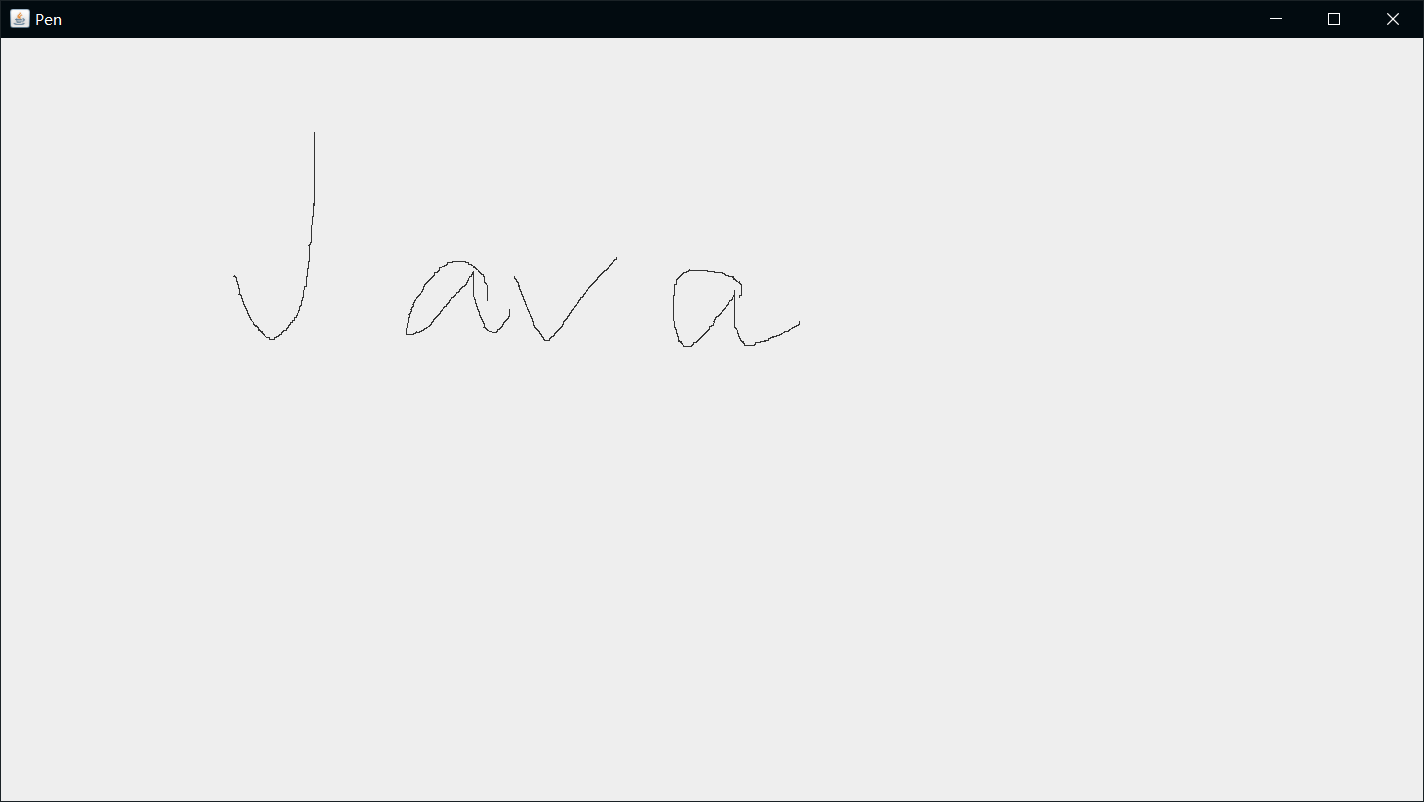 Pen
Java